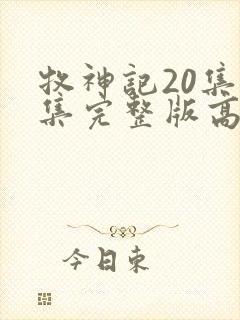 牧神記20集
集完整版高
今日束